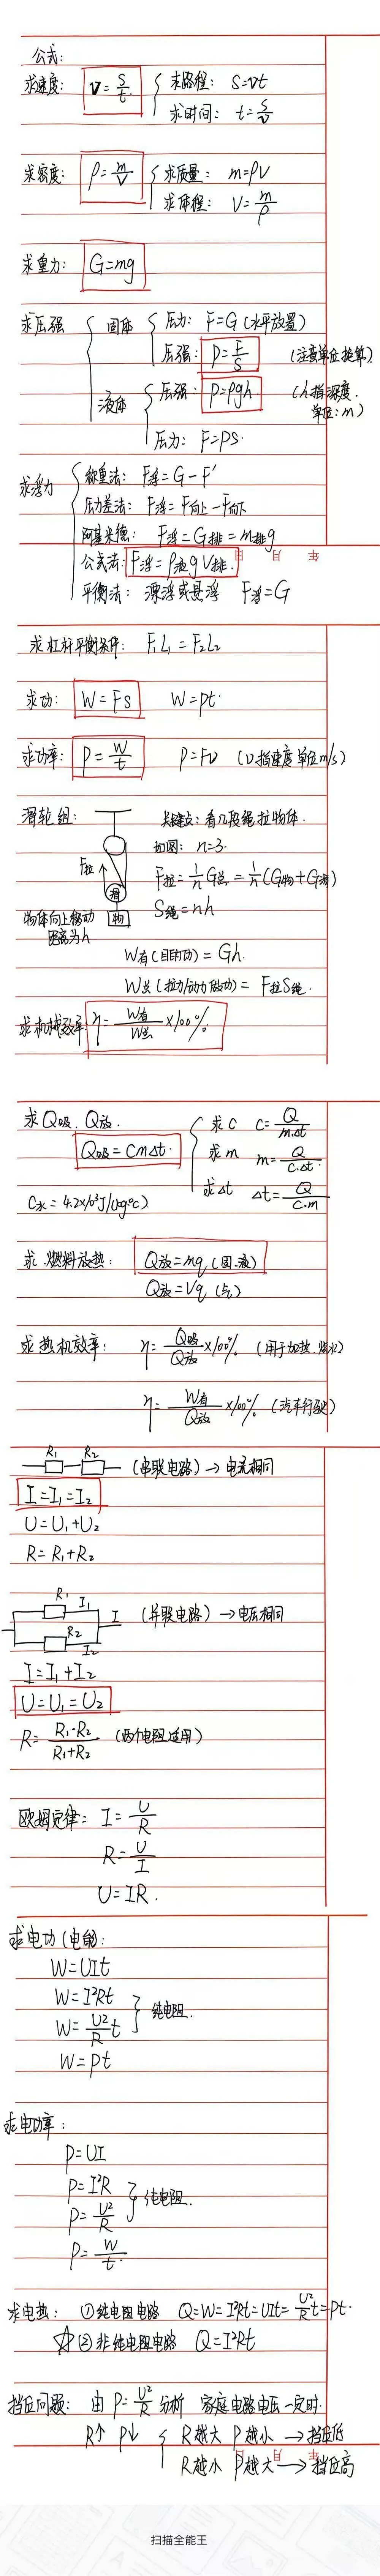 公式:
求速度: v=s/t { 求路程: s=vt
求时间: t=s/v
求密度: ρ=m/V { 求质量: m=ρV
求体积: V=m/ρ
求重力: G=mg
求压强 { 固体 { 压力: F=G (水平放置)
压强: p=F/S (注意单位换算)
液体 { 压强: p=ρgh (h指深度. 单位:m)
压力: F=PS.
求浮力 { 称重法: F浮=G-F'
压力差法: F浮=F向上-F向下
阿基米德: F浮=G排=m排g
公式法: F浮=ρ液gV排.
年 月 日
平衡法: 漂浮或悬浮 F浮=G
求杠杆平衡条件: F₁L₁=F₂L₂
求功: W=Fs W=pt.
求功率: P=W/t P=Fv (v指速度 单位m/s)
滑轮组: 关键点: 看几段绳拉物体.
如图: n=3.
F拉 F拉=1/n G总=1/n(G物+G滑)
滑
物
S绳=nh
物体向上移动
距离为h
W有(目的功)=Gh.
W总(拉力/动力做功)=F拉S绳.
求机械效率 η=W有/W总×100%
求Q吸.Q放.
Q吸=cmΔt. { 求c c=Q/m.Δt
求m m=Q/c.Δt.
求Δt Δt=Q/c.m
C水=4.2×10³J/(kg℃)
求.燃料放热: Q放=mq(固.液)
Q放=Vq(气)
求热机效率: η=Q吸/Q放×100% (用于加热.烧水)
η=W有/Q放×100% (汽车行驶)
R₁ R₂ (串联电路)→电流相同
I=I₁=I₂
U=U₁+U₂
R=R₁+R₂
R₁ I₁ I (并联电路)→电压相同
R₂ I₂
I=I₁+I₂
U=U₁=U₂
R=R₁·R₂/R₁+R₂ (两个电阻适用)
欧姆定律: I=U/R
R=U/I
U=IR.
求电功(电能):
W=UIt
W=I²Rt } 纯电阻.
W=U²/R t
W=pt
求电功率:
P=UI
P=I²R } 纯电阻.
P=U²/R
P=W/t.
求电热: ①纯电阻电路 Q=W=I²Rt=UIt=U²/R t=pt.
☆②非纯电阻电路 Q=I²Rt
挡位问题: 由P=U²/R分析 家庭电路电压一定时.
R↑ P↓ { R越大 P越小→挡位低
年 月 日
R越小 P越大→挡位高
扫描全能王